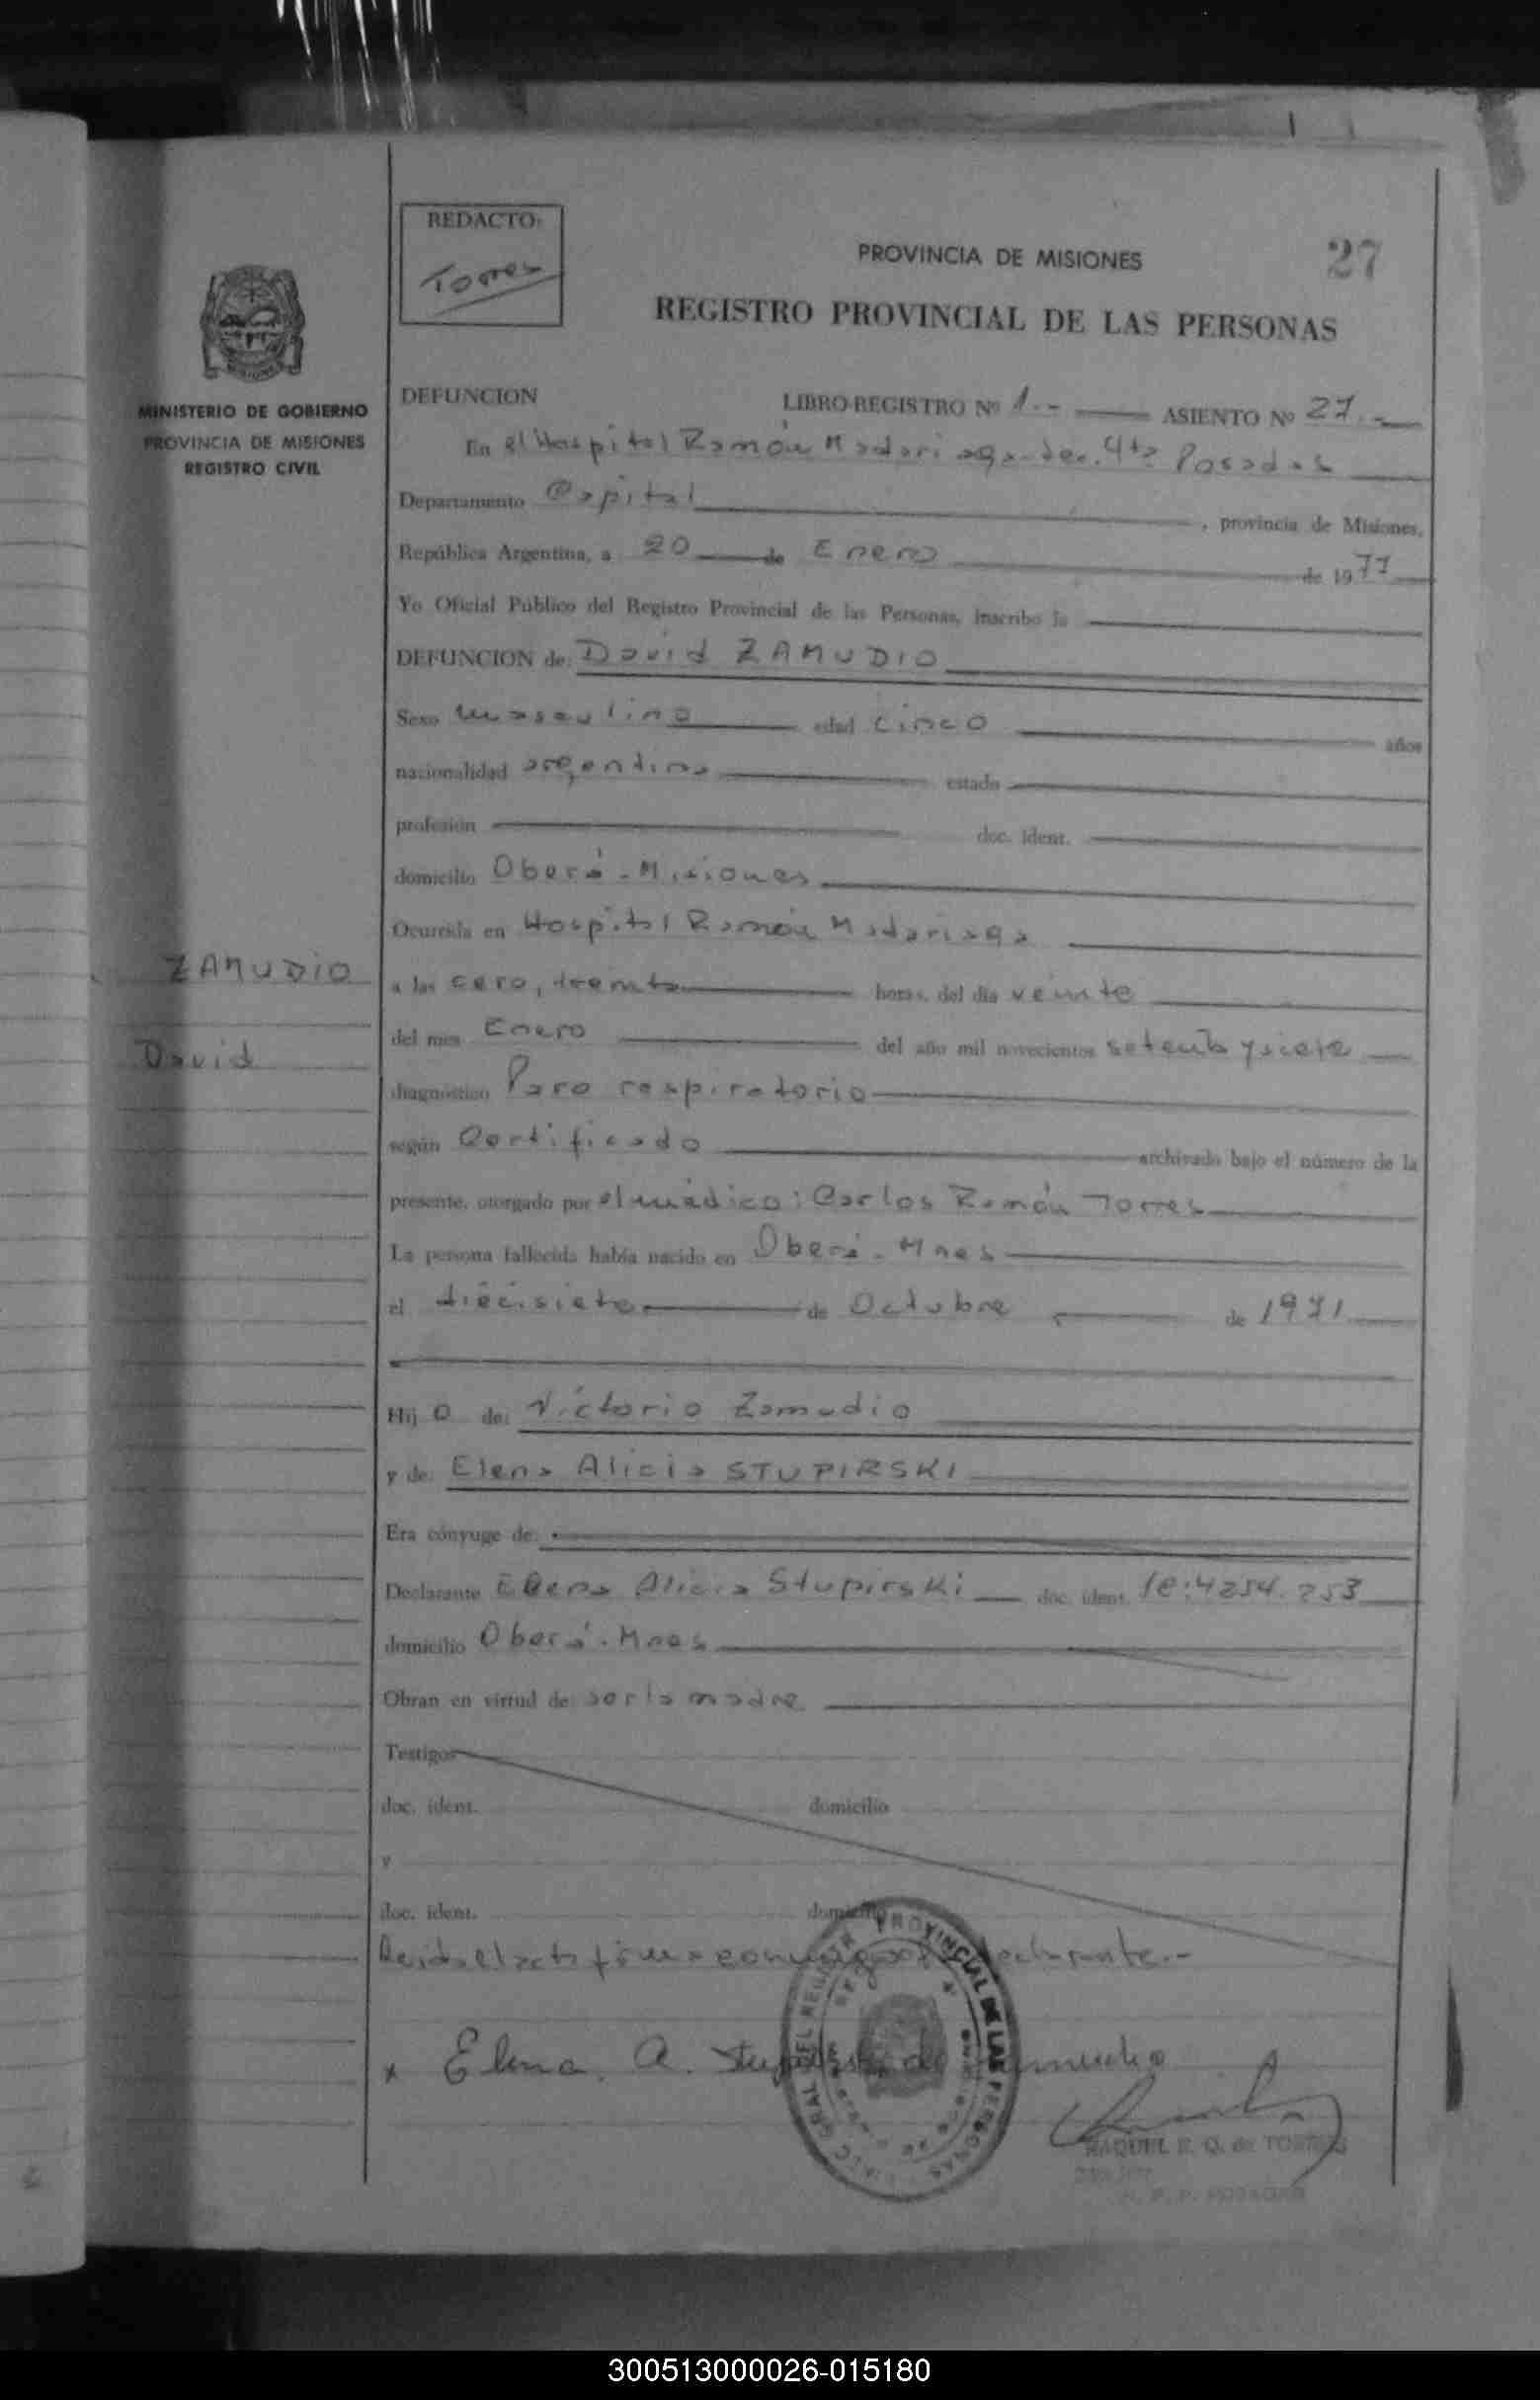 REDACTO:
Torres
PROVINCIA DE MISIONES
27
REGISTRO PROVINCIAL DE LAS PERSONAS
MINISTERIO DE GOBIERNO
PROVINCIA DE MISIONES
REGISTRO CIVIL
DEFUNCION LIBRO REGISTRO Nº 1.- ASIENTO Nº 27.-
En el Hospital Ramón Madariaga-Sec. 4ta Posadas
Departamento Capital, provincia de Misiones,
República Argentina, a 20 de Enero de 1977
Yo Oficial Público del Registro Provincial de las Personas, inscribo la
DEFUNCION de: David ZAMUDIO
Sexo masculino edad cinco años
nacionalidad argentina estado
profesión doc. ident.
domicilio Oberá - Misiones
Ocurrida en Hospital Ramón Madariaga
ZAMUDIO
David
a las cero, treinta horas, del día veinte
del mes Enero del año mil novecientos setenta y siete
diagnóstico Paro respiratorio
según Certificado archivado bajo el número de la
presente, otorgado por el médico: Carlos Ramón Torres
La persona fallecida había nacido en Oberá - Mnes
el diecisiete de Octubre de 1971
Hij o de: Victorio Zamudio
y de: Elena Alicia STUPIRSKI
Era cónyuge de:
Declarante Elena Alicia Stupirski doc. ident. le: 4254.253
domicilio Oberá - Mnes
Obran en virtud de: ser la madre
Testigos
doc. ident. domicilio
y
doc. ident. domicilio
Leida el acta firma conmigo declarante.-
x Elena A. Stupirski de Zamudio
PROVINCIAL DE LAS PERSONAS
RAQUEL E. Q. de TORRES
300513000026-015180